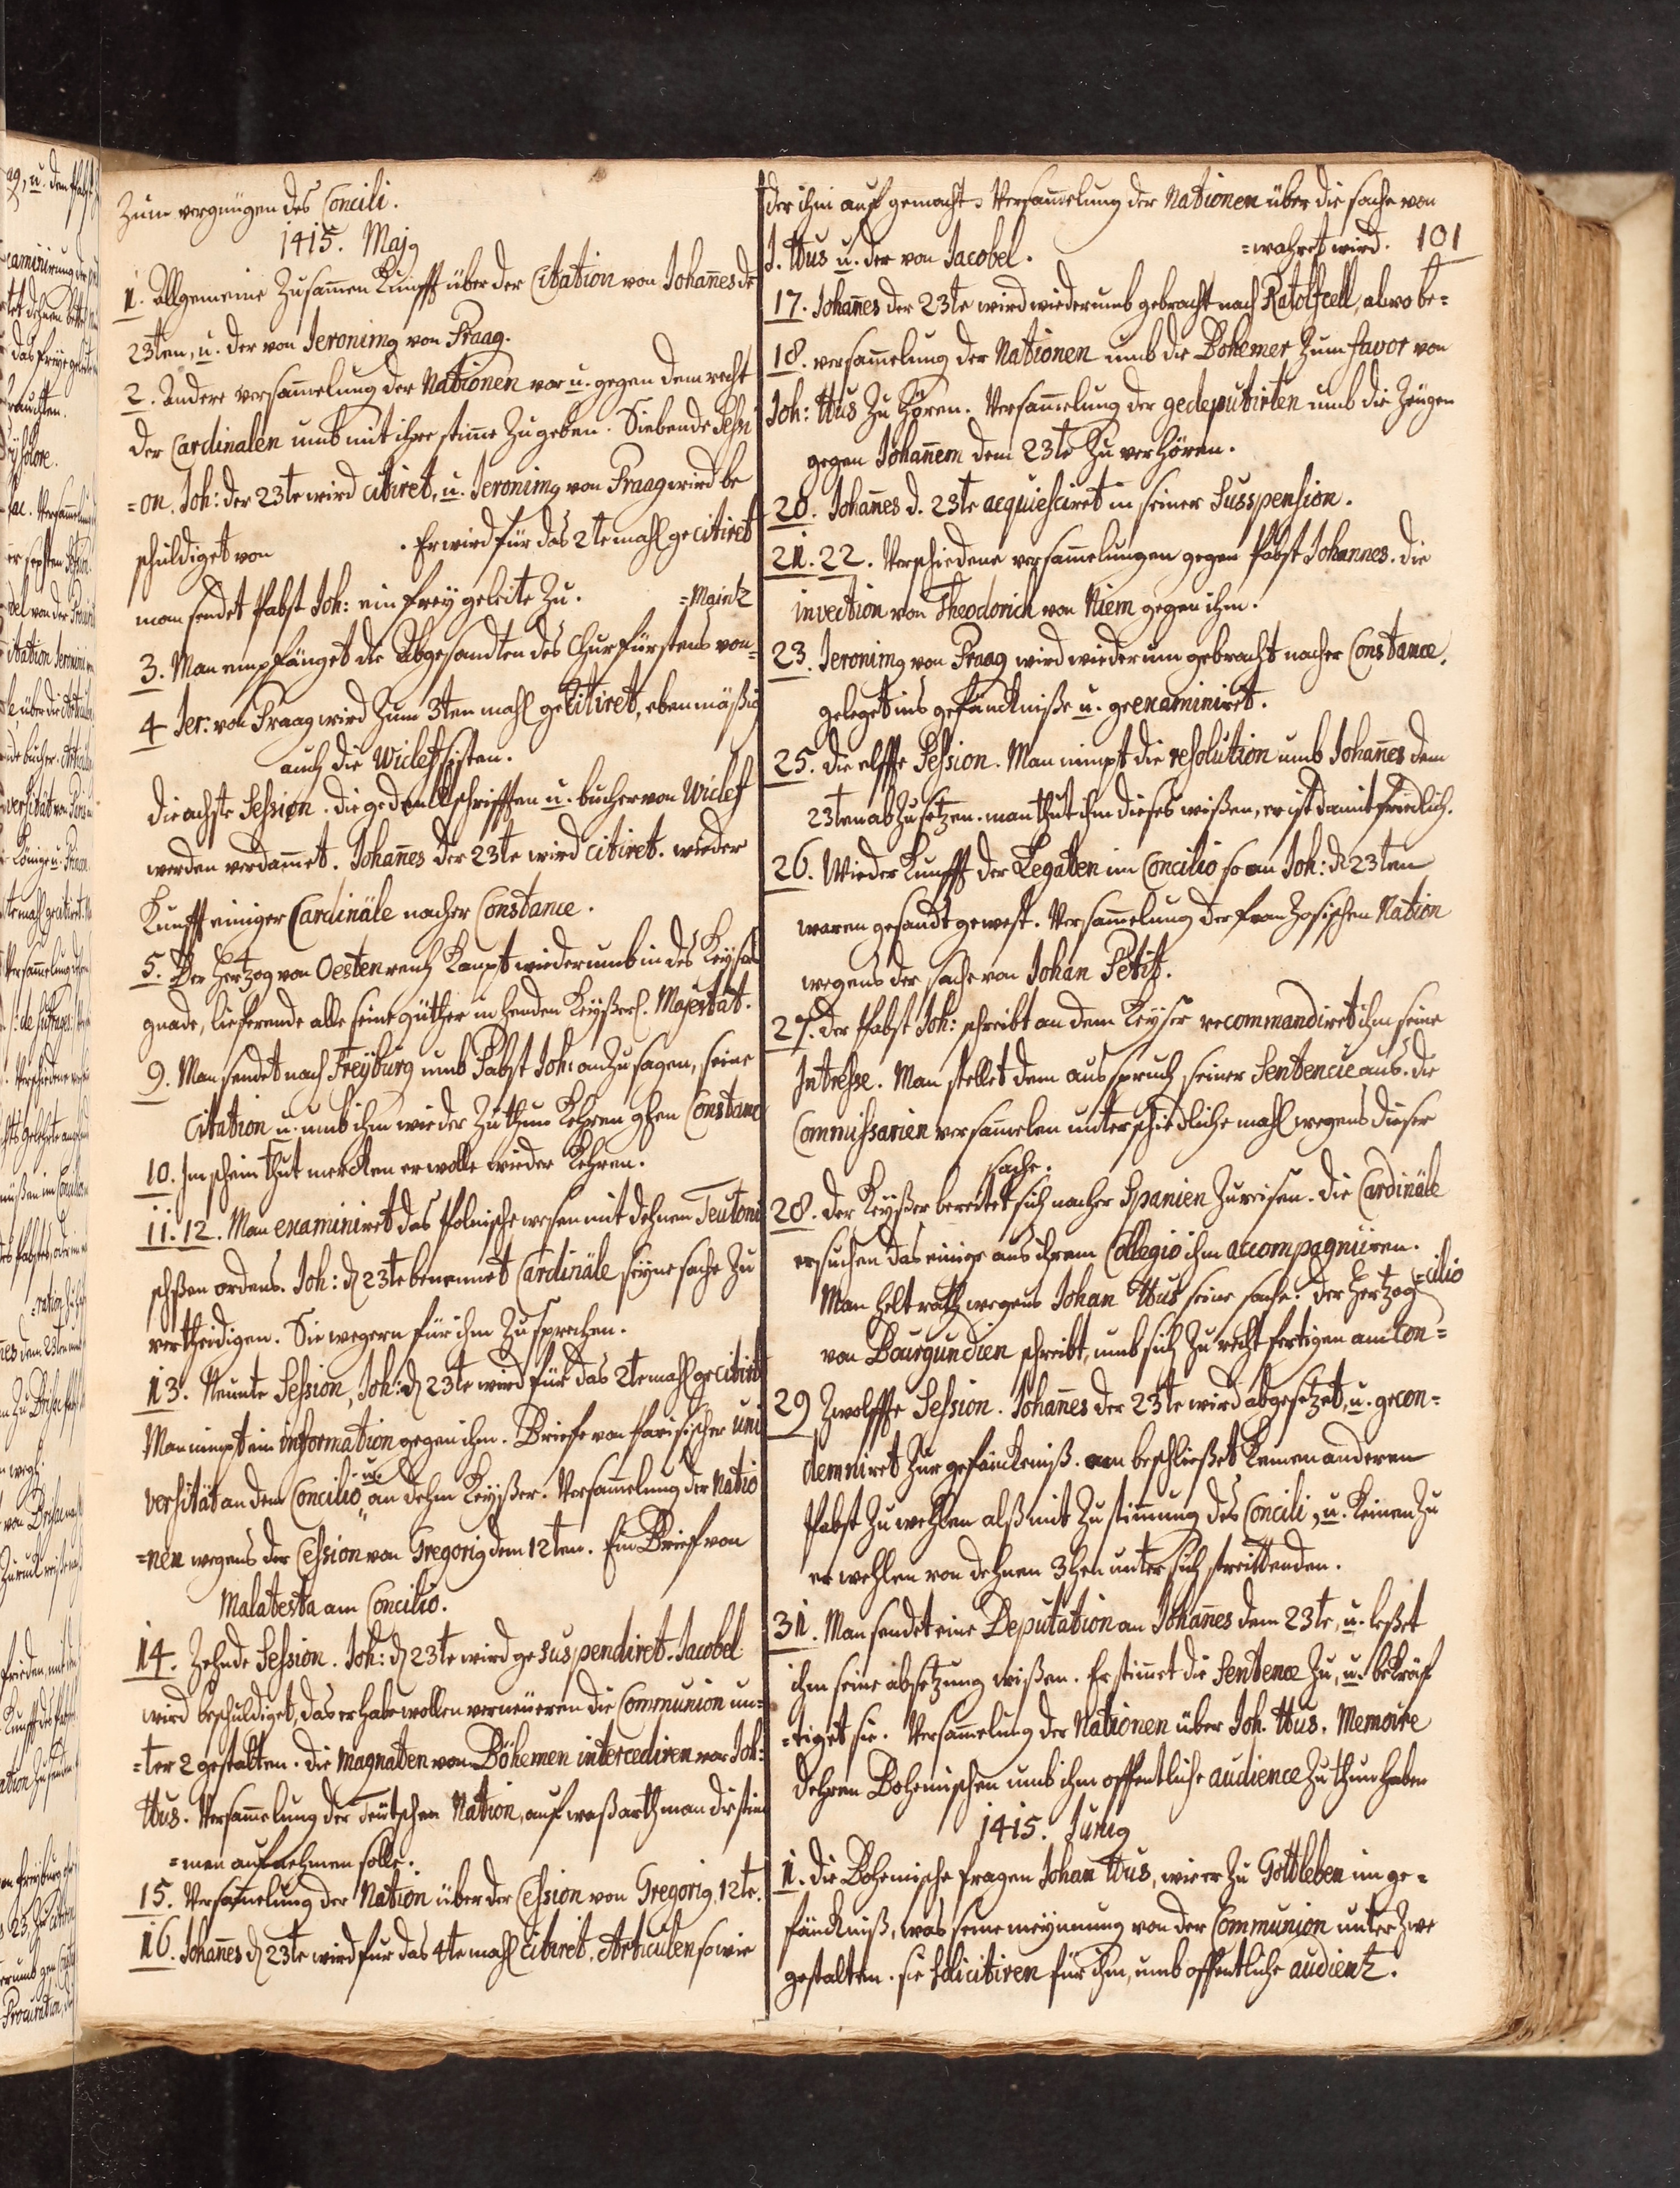 zum vergnügen des Concili.
1415. Majg
1. Allgemeine Zusam̄en Kunfft über der Citation von Johan̄es de
23ten, u. der von Jeronimg von Praag.
2. Andere versam̄elung der Nationen vor u. gegen dem recht
der Cardinalen umb mit ihre stim̄e zu geben. Siebende Sessi
=on. Joh: der 23te wird citiret, u. Jeronimg von Praag wird be
schuldiget von . Er wird für das 2te mahl gecitiret
man sendet Pabst Joh: ein frey geleite zu. =Maintz
3. Man empfänget die Abgesandten des Churfürstens von=
4 Jer: von Praag wird zum 3ten mahl gecitiret, eben mäßig
auch die Wiclefsisten.
die achste Session. die gedenckschrifften u. bucher von Wiclef
werden verdam̄et. Johan̄es der 23te wird citiret. wieder
Kunfft einiger Cardinäle nacher Constance.
5. Der Hertzog von Oestenreich kompt wiederumb in des Keysers
gnade, lieferende alle seine güther in henden Keyßerl. Majestät.
9. Man sendet nach Freyburg umb Pabst Joh: an zu sagen, seine
Citation u. umb ihm wieder zu thun kehren ghen Constance
10. Im schein thut mercken er wolle wieder kehren.
11. 12. Man examiniret das Polnische wesen mit dehnen Teutoni
schßen ordens. Joh: d 23te benennet Cardinäle seine sache zu
vertheidigen. Sie wegern für ihm zu sprechen.
13. Neunte Session, Joh: d 23te wird für das 2te mahl gecitiret
Man nimpt ein information gegen ihm. Briefe von Parisischer uni
versität an dem Concilio u. an dehm Keyßer. Versam̄elung der Natio
=nen wegens der Cession von Gregorig dem 12ten. Ein Brief von
Malatesta am Concilio.
14. Zehnde Session. Joh: d 23te wird gesuspendiret. Jacobel
wird beschuldiget, das er habe wollen verneueren die Communion un=
=ter 2 gestalten. die Magnaten von Böhemen intercediren vor Joh:
Hus. Versam̄elung der Teutschen Nation, auf waß arth man die stim
=men aufnehmen solle.
15. Versam̄elung der Nation über der Cession von Gregorig 12te.
16. Johan̄es d 23te wird für das 4te mahl citiret. Articulen so wie
der ihm auf gemacht. Versam̄elung der Nationen über die sache von
J. Hus u. der von Jacobel. =wahret wird. 101
17. Johan̄es der 23te wird wiederumb gebracht nach Ratolfcell, alwo be=
18. versam̄elung der Nationen umb die Bohemer zum favor von
Joh: Hus zu hören. Versam̄elung der gedeputirten umb die Zeugen
gegen Johan̄em dem 23te zu verhören.
20. Johan̄es d. 23te acquiesciret in seiner Susspension.
21. 22. Verschiedene versam̄elungen gegen Pabst Johannes. die
invection von Theodorich von Niem gegen ihm.
23. Jeronimg von Praag wird wiederum gebracht nacher Constance,
geleget ins gefänckniße u. geexaminiret.
25. die elffte Session. Man nimpt die resolution umb Johan̄es dem
23ten ab zu setzen. man thut ihm dieses wißen, er ist damit friedlich.
26. Wieder Kunfft der Legaten im Concilio so an Joh: d 23ten
waren gesandt gewest. Versam̄elung der franzosischen Nation
wegens der sache von Johan Petit.
27. der Pabst Joh: schreibt an dem Keyser recommandiret ihm seine
Intresse. Man stellet dem ausspruch seiner Sentencie aus. die
Commissarien versam̄elen unterschiedliche mahl wegens dieser
sache.
28. der Keyßer bereitet sich nacher Spanien zu reisen. die Cardinäle
ersuchen das einige aus ihrem Collegio ihm accompagniiren.
Man helt rath wegens Johan Hus seine sache. der Hertzog =cilio
von Bourgundien schreibt, umb sich zu recht fertigen am Con=
29 Zwolffte Session. Johan̄es der 23te wird abgesetzet, u. gecon=
demniret zur gefänckniß. beschließet keinen anderen
Pabst zu wehlen alß mit zustim̄ung des Concili, u. keinen zu
erwehlen von dehnen 3hen unter sich streittenden.
31. Man sendet eine Deputation an Johan̄es dem 23te, u. leßet
ihm seine absetzung wißen. Er stim̄et die Sentence zu, u. bekräf
=tiget sie. Versam̄elung der Nationen über Joh. Hus. Memoire
dehren Bohemischen umb ihm offentliche audience zu thun haben
1415. Junig
1. die Bohemische fragen Johan Hus, wie er zu Gottleben im ge=
fänckniß, was seine meynnung von der Communion unter zwe
gestalten. sie solicitiren für ihm, umb offentliche audientz.